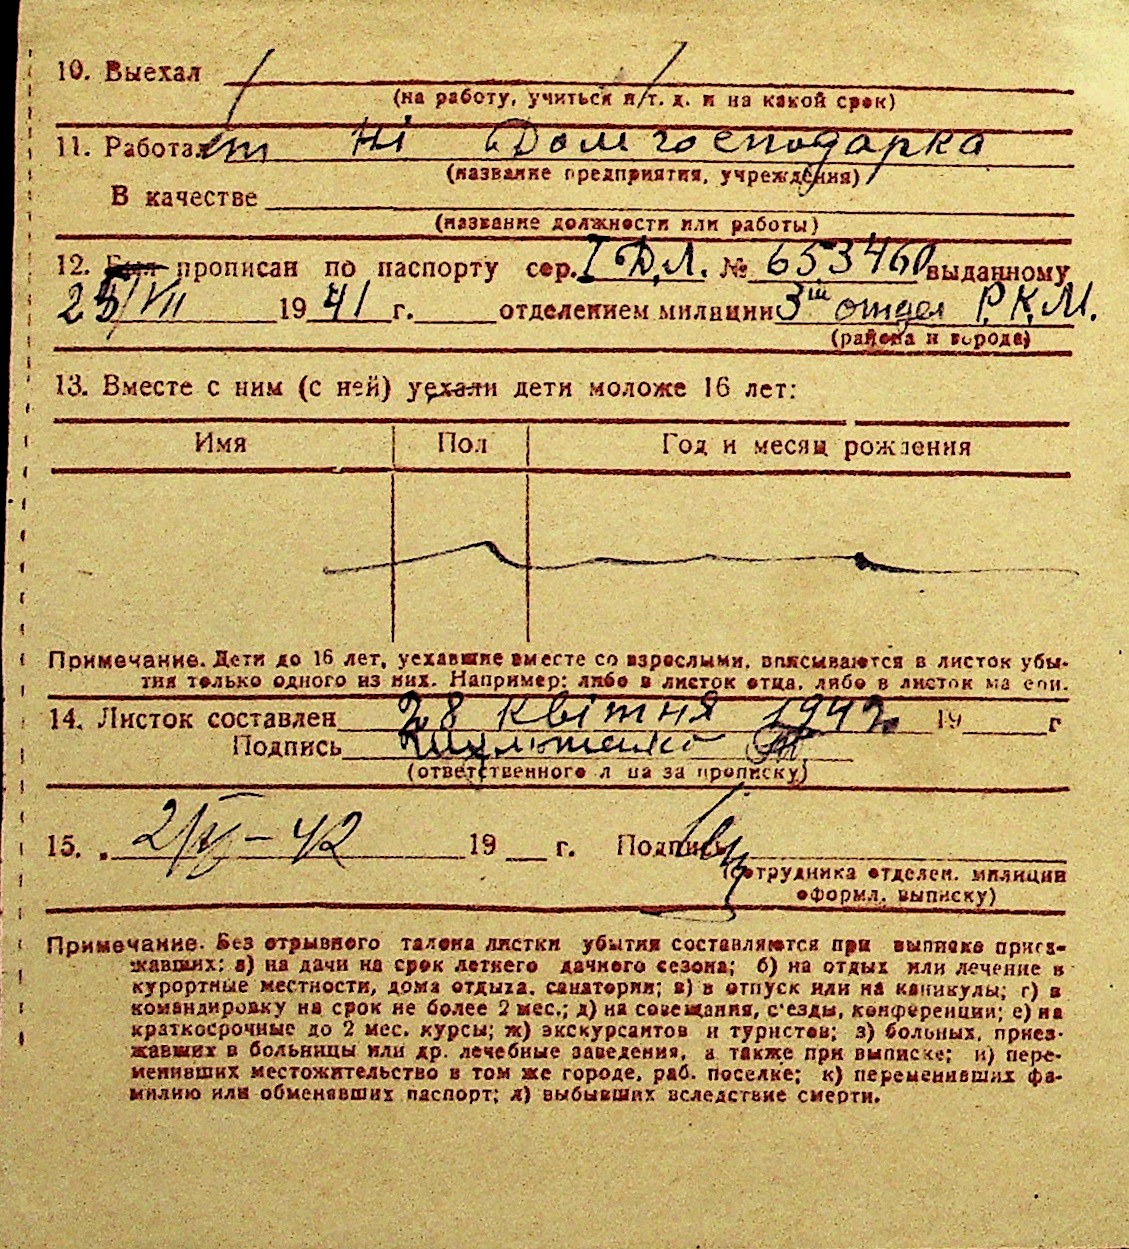 10. Выехал
(на работу, учиться и т. д. и на какой срок)
11. Работает Ні Домгосподарка
(название предприятия, учреждения)
В качестве
(название должности или работы)
12. Был прописан по паспорту сер. I Д.Л. № 653460 выданному
25/VII 1941 г. отделением милиции 3ш отдел Р.К.М.
(района и города)
13. Вместе с ним (с ней) уехали дети моложе 16 лет:
Имя Пол Год и месяц рождения
Примечание. Дети до 16 лет, уехавшие вместе со взрослыми, вписываются в листок убы-
тия только одного из них. Например: либо в листок отца, либо в листок матери.
14. Листок составлен 28 квітня 1942 19 г
Подпись
(ответственного лица за прописку)
15. 2/V-42 19 г. Подпись
(сотрудника отделен. милиции
оформл. выписку)
Примечание. Без отрывного талона листки убытия составляются при выписке приез-
жавших: а) на дачи на срок летнего дачного сезона; б) на отдых или лечение в
курортные местности, дома отдыха, санатории; в) в отпуск или на каникулы; г) в
командировку на срок не более 2 мес.; д) на совещания, с'езды, конференции; е) на
краткосрочные до 2 мес. курсы; ж) экскурсантов и туристов; з) больных, приез-
жавших в больницы или др. лечебные заведения, а также при выписке; и) пере-
менивших местожительство в том же городе, раб. поселке; к) переменивших фа-
милию или обменявших паспорт; л) выбывших вследствие смерти.